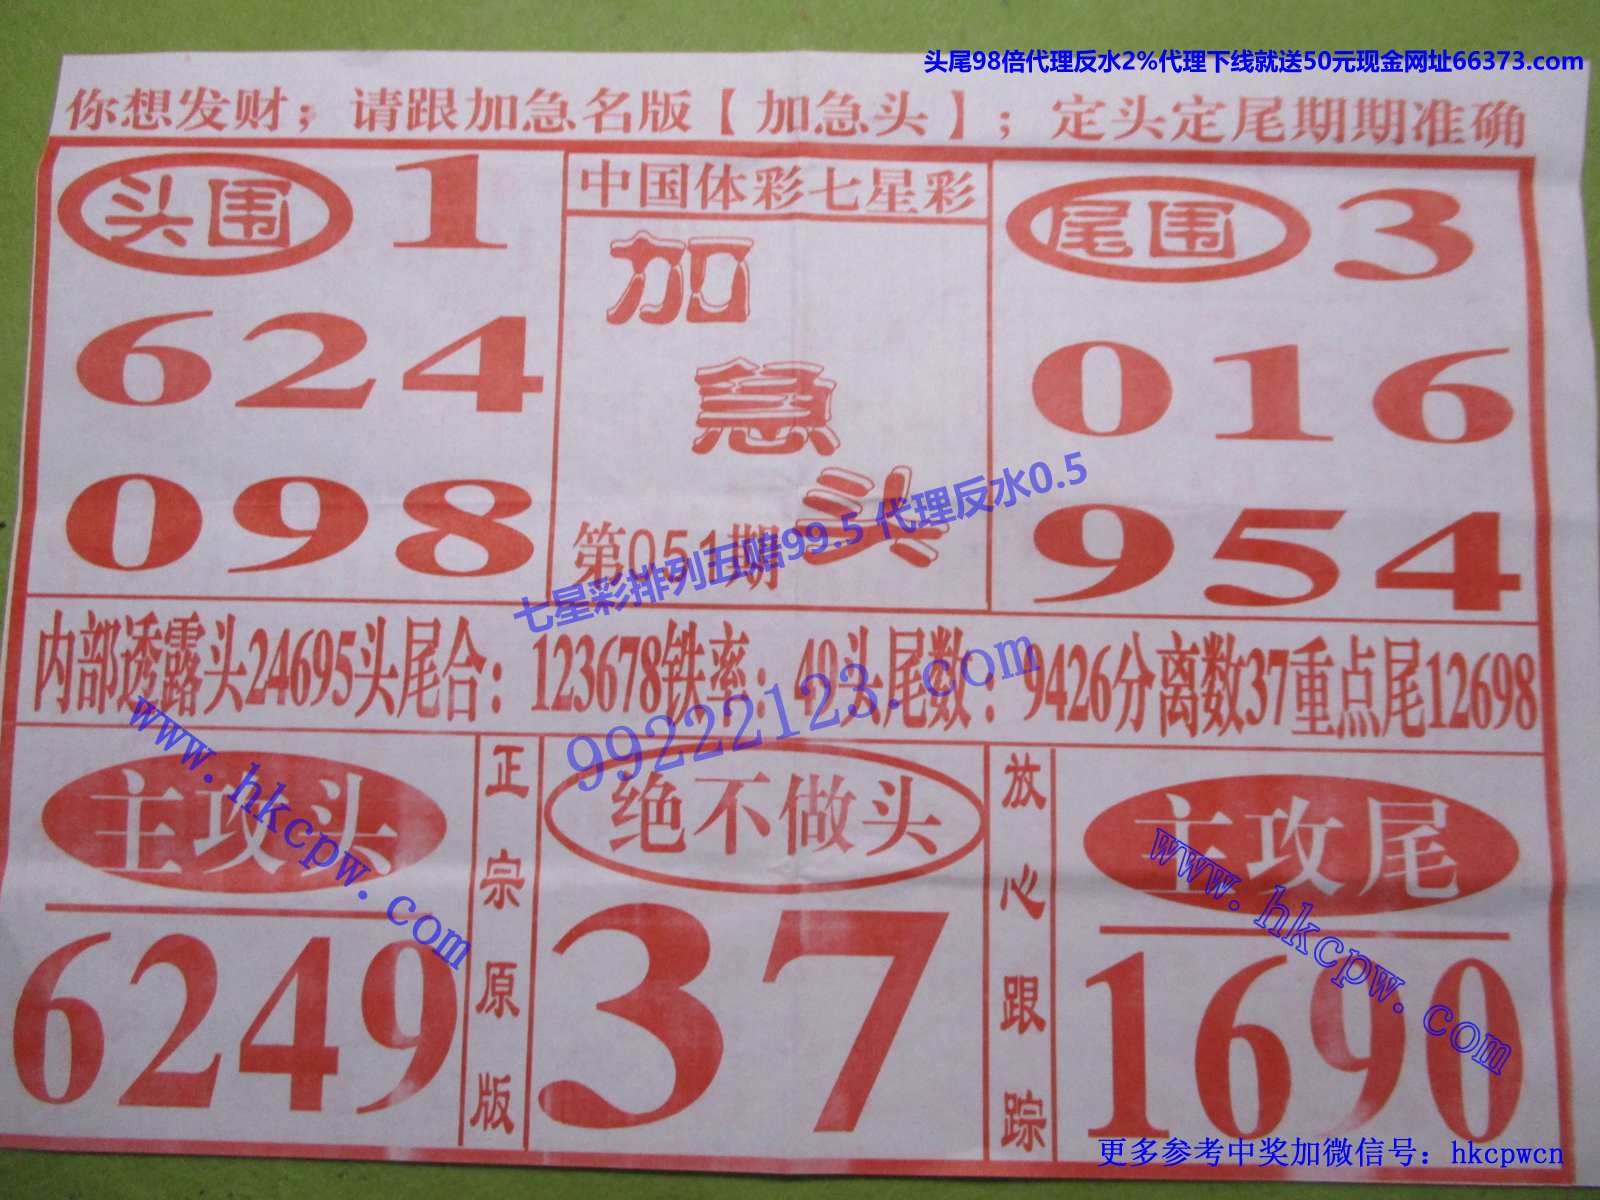 头尾98倍代理反水2%代理下线就送50元现金网址66373.com
你想发财；请跟加急名版【加急头】；定头定尾期期准确
头围 1
624
098
中国体彩七星彩
加
急
头
第051期
尾围 3
016
954
七星彩排列五赔99.5 代理反水0.5
99222123.com
内部透露头24695头尾合：123678铁率：49头尾数：9426分离数37重点尾12698
主攻头
6249
正宗原版
绝不做头
37
放心跟踪
主攻尾
1690
www.hkcpw.com
www.hkcpw.com
更多参考中奖加微信号：hkcpwcn